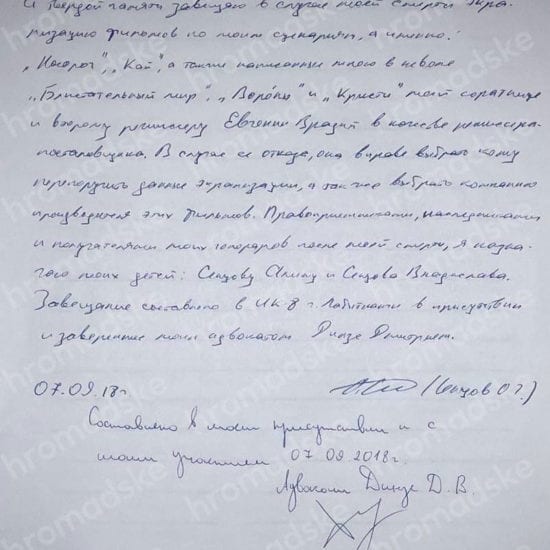 и твердой памяти завещаю в случае моей смерти экра-
низацию фильмов по моим сценариям, а именно:
„Носорог", „Кай", а также написанные мною в неволе
„Блистательный мир", „Воро́ны" и „Кристи" моей соратнице
и второму режиссеру Евгении Врадий в качестве режиссера-
постановщика. В случае ее отказа, она вправе выбрать кому
перепоручить данные экранизации, а так же выбрать компанию
производителя этих фильмов. Правоприемниками, наследниками
и получателями моих гонораров после моей смерти, я назна-
чаю моих детей: Сенцову Алину и Сенцова Владислава.
Завещание составлено в ИК-8 г. Лабытнанги в присутствии
и заверенное моим адвокатом Динзе Дмитрием.
07.09.18г. (Сенцов О.Г.)
Составлено в моем присутствии и с
моим участием 07.09.2018г.
Адвокат Динзе Д.В.
hromadske